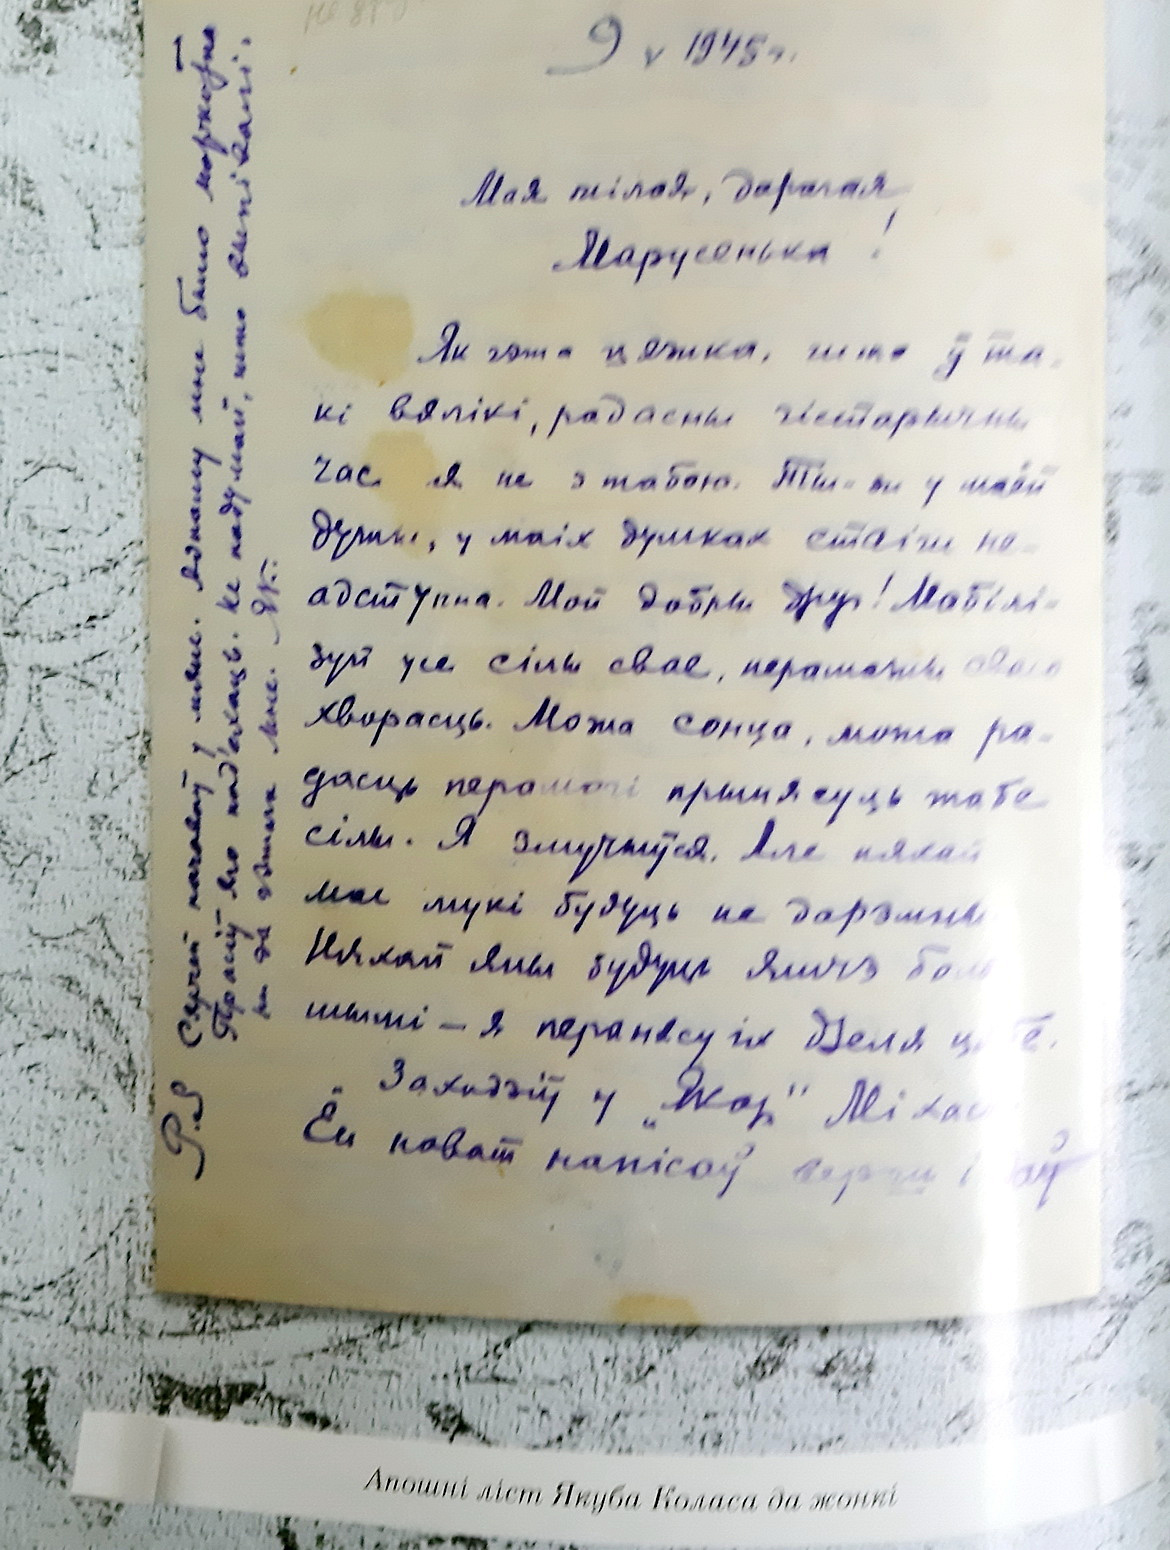 9 V 1945 г.
Мая мілая, дарагая
Марусенька!
Як гэта цяжка, што ў та-
кі вялікі, радасны гістарычны
час я не з табою. Ты - ж у маёй
душы, у маіх думках стаіш не-
адступна. Мой добры друг! Мабілі-
зуй усе сілы свае, перамажы сваю
хворасць. Можа сонца, можа ра-
дасць перамогі прынясуць табе
сілы. Я змучыўся. Але няхай
мае мукі будуць не дарэмны
Няхай яны будуць яшчэ боль
шымі — я перанясу іх дзеля цябе.
Заходзіў у "Якар" Міхась
Ён нават напісаў верш і
P.S. Сяргей начаваў у мяне. Аднаму мне было маркотна
Прасіў яго пад'ехаць. Не падумай, што выпівалі.
ні да гэтага мне. Як.
Апошні ліст Якуба Коласа да жонкі